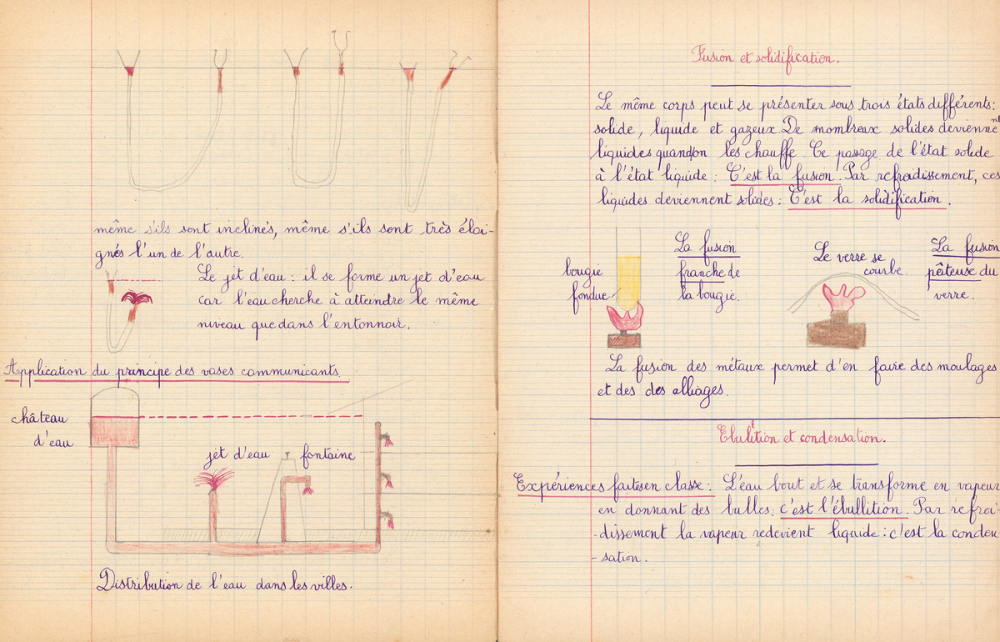 même s'ils sont inclinés, même s'ils sont très éloi-
gnés l'un de l'autre.
Le jet d'eau : il se forme un jet d'eau
car l'eau cherche à atteindre le même
niveau que dans l'entonnoir.
Application du principe des vases communicants.
château
d'eau
jet d'eau
fontaine
Distribution de l'eau dans les villes.
Fusion et solidification.
Le même corps peut se présenter sous trois états différents:
solide, liquide et gazeux. De nombreux solides deviennent
liquides quand on les chauffe. Ce passage de l'état solide
à l'état liquide : C'est la fusion. Par refroidissement, ces
liquides deviennent solides : C'est la solidification.
bougie
fondue
La fusion
franche de
la bougie.
Le verre se
courbe
La fusion
pâteuse du
verre.
La fusion des métaux permet d'en faire des moulages
et des des alliages.
Ebullition et condensation.
Expériences faites en classe : L'eau bout et se transforme en vapeur
en donnant des bulles : c'est l'ébullition. Par refroi-
-dissement la vapeur redevient liquide : c'est la conden
-sation.